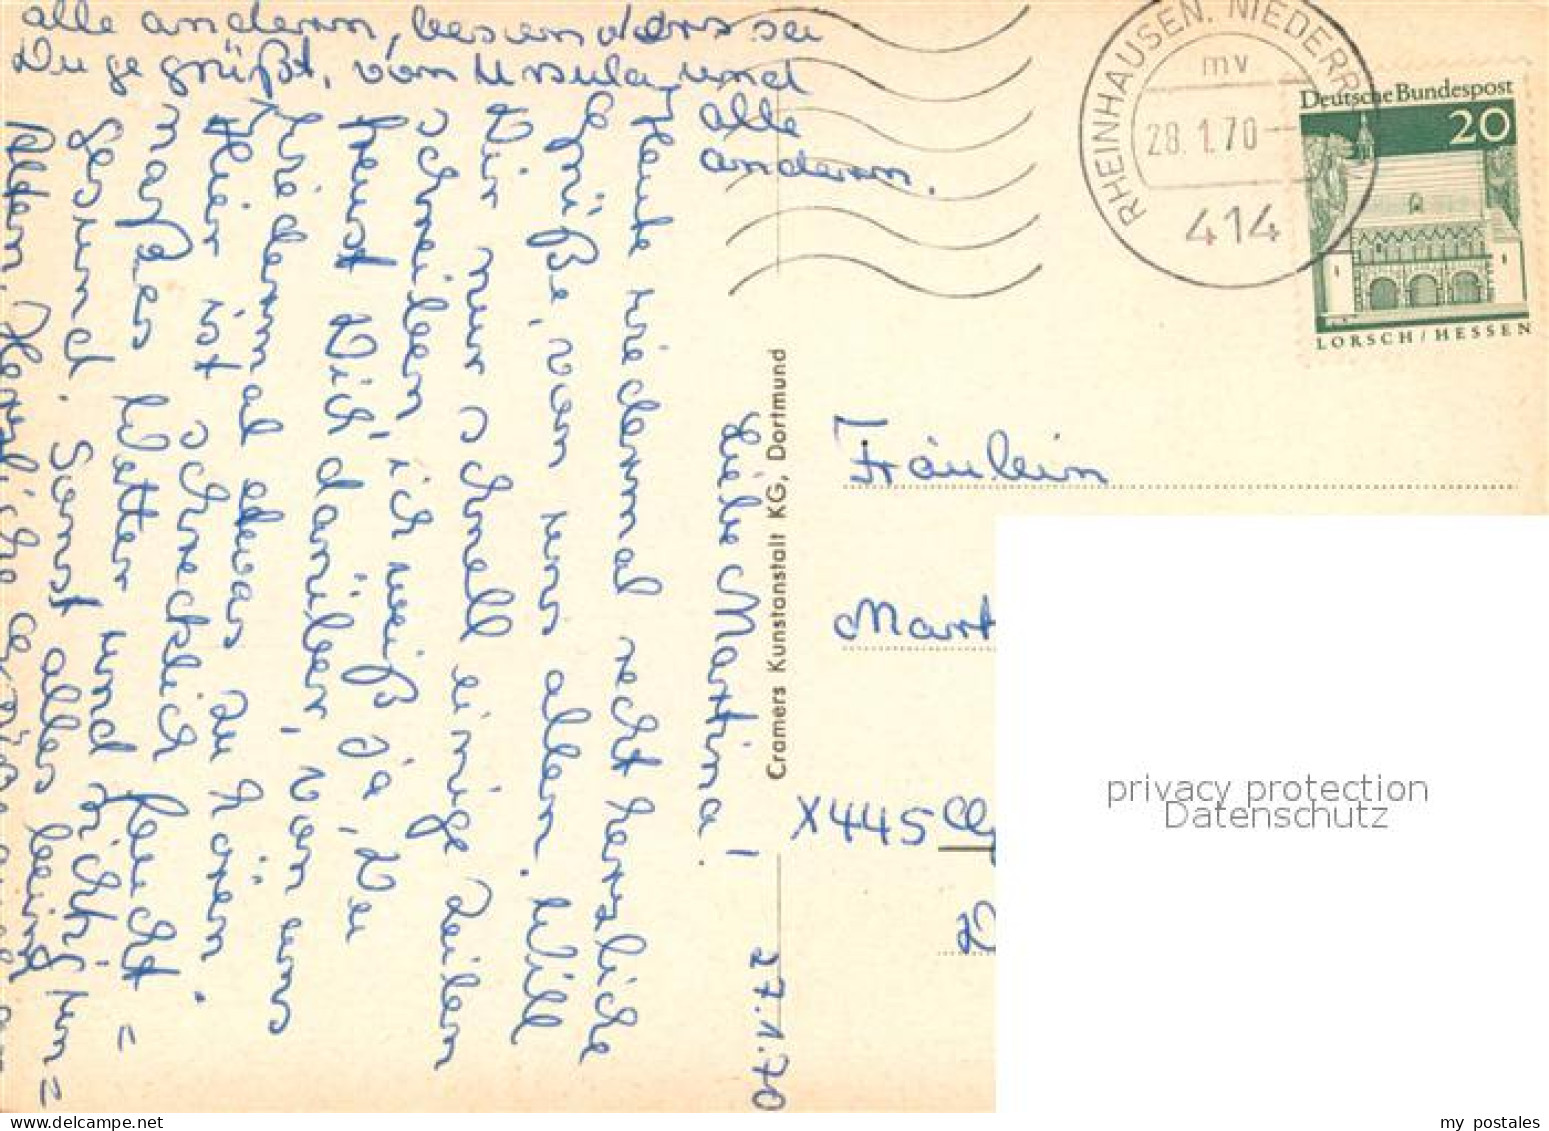 27.1.70
Liebe Martina!
Heute wiedermal recht herzliche
Grüße, von uns allen. Will
Dir nur schnell einige Zeilen
schreiben, ich weiß ja, Du
freust Dich darüber, von uns
wiedermal etwas zu hören.
Hier ist schrecklich feucht=
naßes Wetter und nicht, un=
gesund. Sonst alles beim
alten. Herzliche Grüße
alle andern, besonders sei
Du gegrüßt, von Ursula und
alle
andern.
Cramers Kunstanstalt KG, Dortmund
RHEINHAUSEN, NIEDERRH
mv
28.1.70
414
Deutsche Bundespost
20
LORSCH/HESSEN
Fräulein
Mart
X445
privacy protection
Datenschutz
my postales